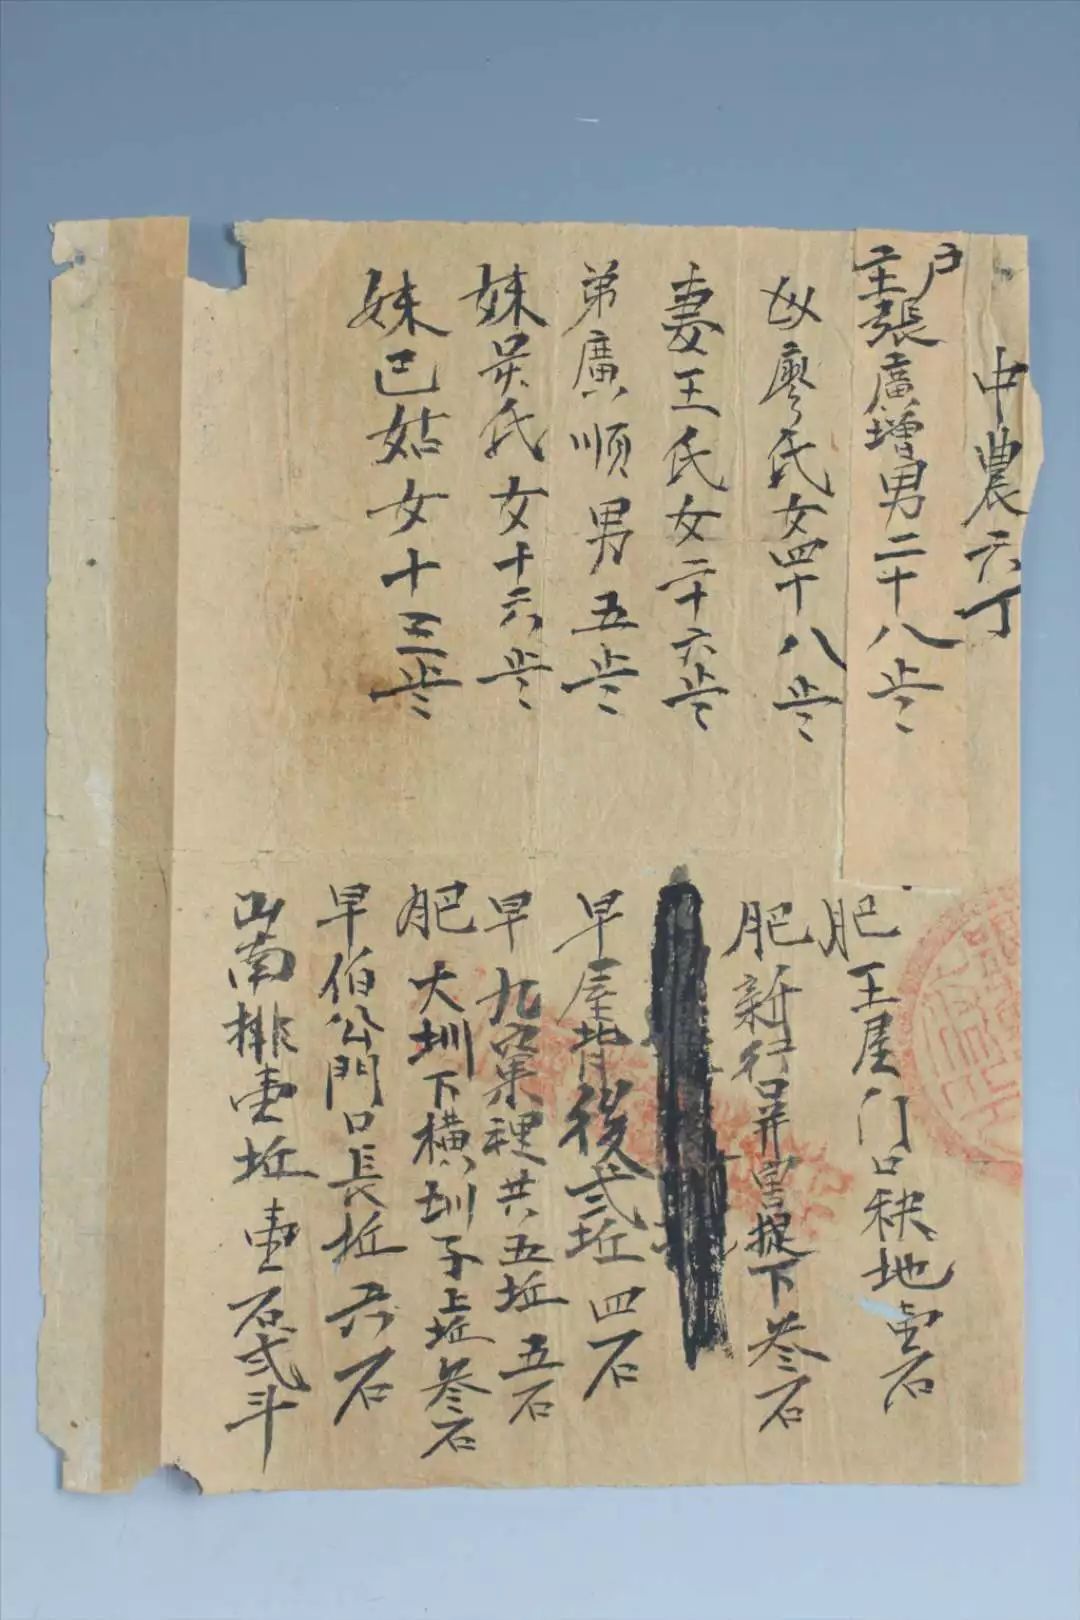 中農六丁
户主張廣增男二十八岁
母廖氏女四十八岁
妻王氏女二十六岁
弟廣順男五岁
妹吴氏女十六岁
妹己姑女十三岁
肥王屋门口秧地壹石
肥新行下叁石
早屋背後弍坵四石
早九窠裡共五坵五石
肥大圳下横圳子上坵叁石
早伯公門口長坵六石
山南排壹坵壹石弍斗